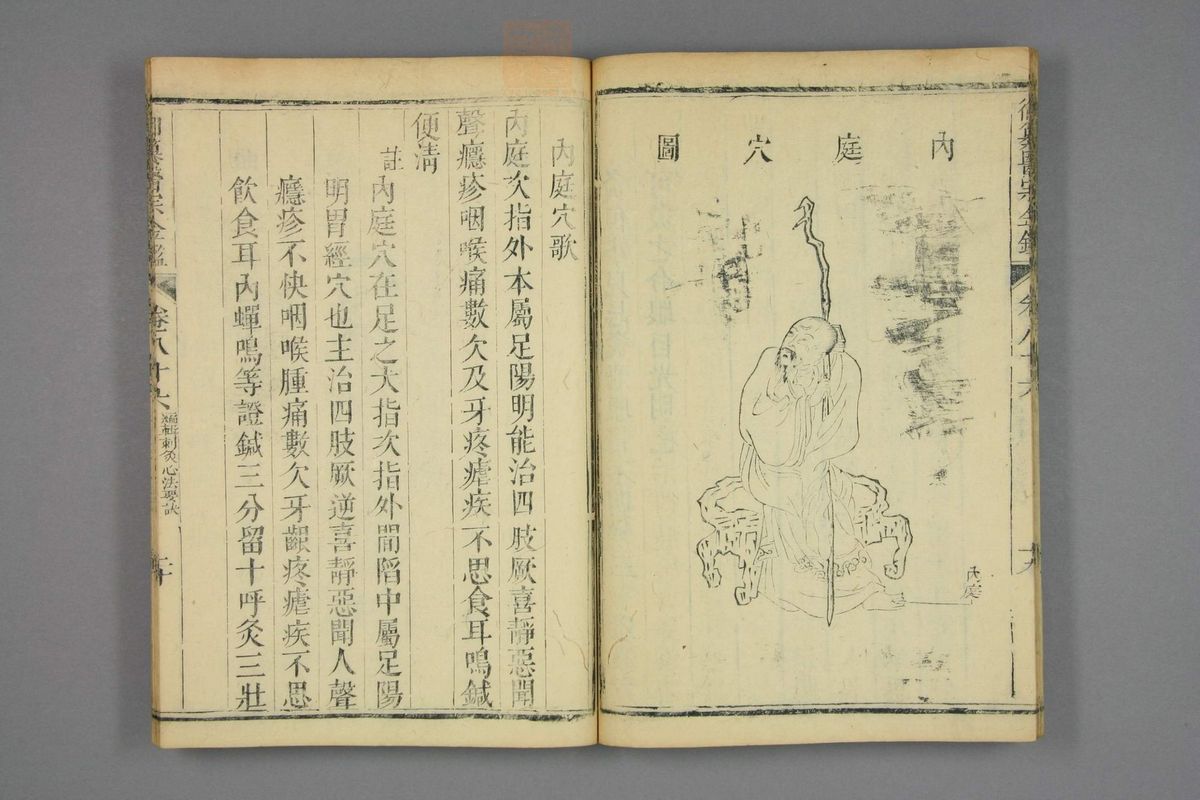 內庭穴圖
內庭
內庭穴歌
內庭次指外本屬足陽明能治四肢厥喜靜惡聞
聲癮疹咽喉痛數欠及牙疼瘧疾不思食耳鳴鍼
便清
註
內庭穴在足之大指次指外間陷中屬足陽
明胃經穴也主治四肢厥逆喜靜惡聞人聲
癮疹不快咽喉腫痛數欠牙齦疼瘧疾不思
飲食耳內蟬鳴等證鍼三分留十呼灸三壯
御纂醫宗金鑑
卷八十六
編輯刺灸心法要訣